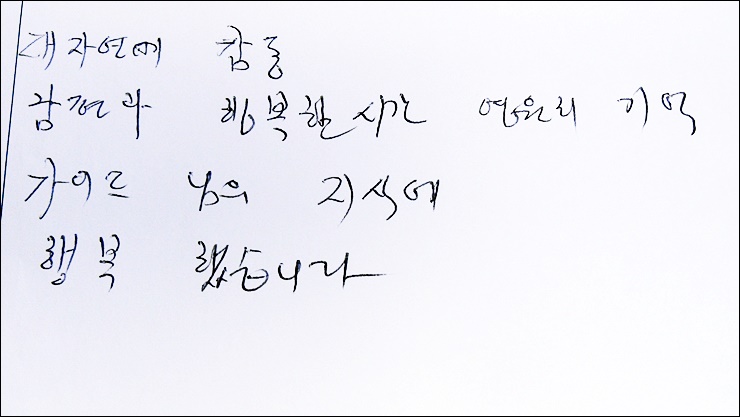 대자연에 감동
감전과 행복한 시간 영원히 기억
가이드 님의 지식에
행복 했습니다